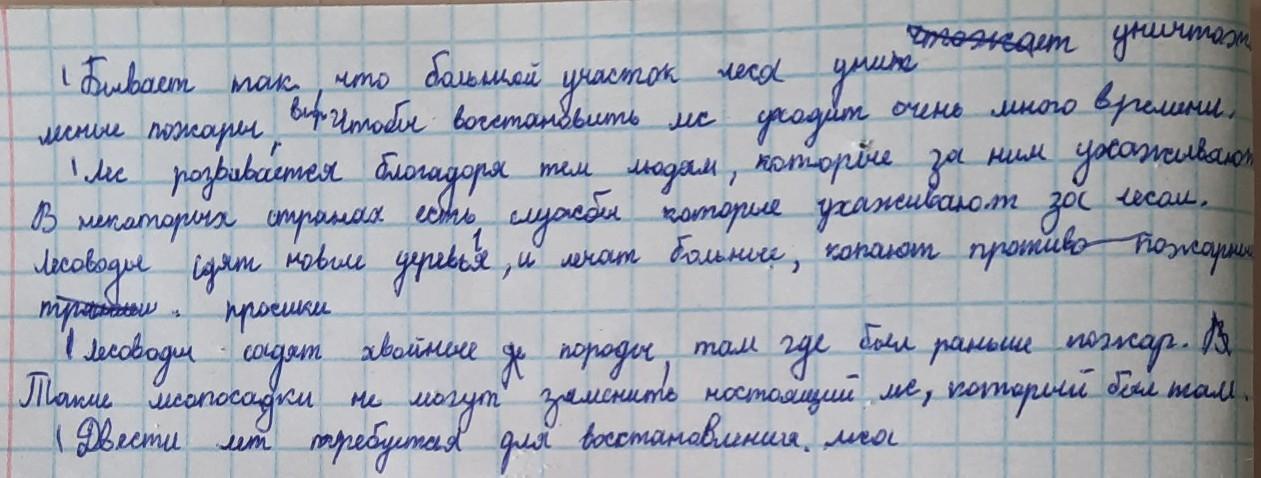 Бывает так, что большой участок леса униж уничтож
лесные пожары, Чтобы восстановить лес уходит очень много времени.
Лес розвивается благадоря тем людям, которые за ним ухаживают
В некаторых странах есть службы которые ухаживают за лесом.
Лесоводы сдят новые деревья, и лечат больные, копают противо-пожарные
просики
Лесоводы садят хвойные де породы, там где был раньше пожар. В
Такие лесопосадки не могут заменить настоящий лес, который был там.
Двести лет требуется для восстановления. леса